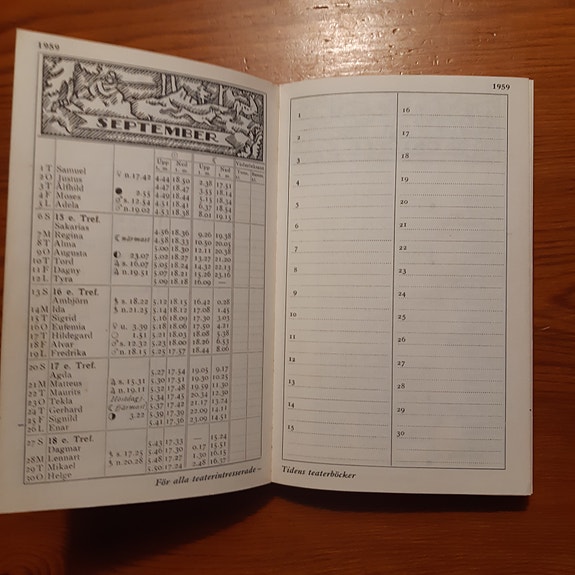 1959
SEPTEMBER
Upp Ned Upp Ned
1 T Samuel ♀ n.17.42 4.44 18.50
2 O Justus 4.47 18.47 2.38 17.31
3 T Alfhild 2.55
4 F Moses ♂ s. 12.54 6.37 18.54
5 L Adela ♂ n. 19.02 4.53 18.38 8.01 19.15
6 S 15 e. Tref.
Sakarias 4.36 18.36 9.26 19.38
7 M Regina ☾ närmast 4.58 18.33 10.50 20.05
8 T Alma 5.00 18.30 12.11 20.38
9 O Augusta 23.07 5.02 18.27 13.27 21.20
10 T Tord s. 16.07 5.05 18.24 14.32 22.13
11 F Dagny n. 19.51 5.07 18.21 15.26 23.16
12 L Tyra 5.09 18.18 16.09 —
13 S 16 e. Tref.
Ambjörn s. 18.22 5.12 18.15 16.42 0.28
14 M Ida n. 21.25 5.14 18.12 17.08 1.45
15 T Sigrid 5.16 18.09 17.30 3.03
16 O Eufemia ♀ u. 3.39 5.18 18.06 17.50 4.21
17 T Hildegard ♀ 1.51 5.21 18.03 18.08 5.38
18 F Alvar ♂ s. 12.32 5.23 18.00 18.26 6.53
19 L Fredrika ♂ n. 18.15 5.25 17.57 18.44 8.06
20 S 17 e. Tref.
Agda 5.27 17.54 19.05 9.17
21 M Matteus s. 15.31 5.30 17.51 19.30 10.25
22 T Maurits n. 19.11 5.32 17.48 19.59 11.30
23 O Tekla Höstdagj. 5.34 17.45 20.34 12.30
24 T Gerhard ☾ fjärmast 5.37 17.42
25 F Signild 3.22 5.39 17.39 22.09 14.11
26 L Enar 5.41 17.36 23.09
27 S 18 e. Tref.
Dagmar 5.43 17.33 — 15.24
28 M Lennart s. 17.25 5.46 17.30 0.17 15.51
29 T Mikael n. 20.28 5.48 17.27 1.30 16.15
30 O Helge 5.50 17.24 2.48 16.37
För alla teaterintresserade –
1959
1 16
2 17
3 18
4 19
5 20
6 21
7 22
8 23
9 24
10 25
11 26
12 27
13 28
14 29
15 30
Tidens teaterböcker